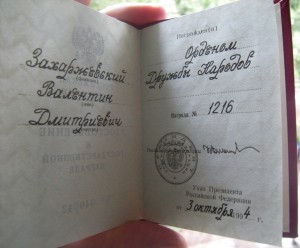 Захаржевский
Валентин
Дмитриевич
Награжден(а)
Орденом
Дружбы Народов
Награда № 1216
Указ Президента
Российской Федерации
от 3 октября 1994 г.